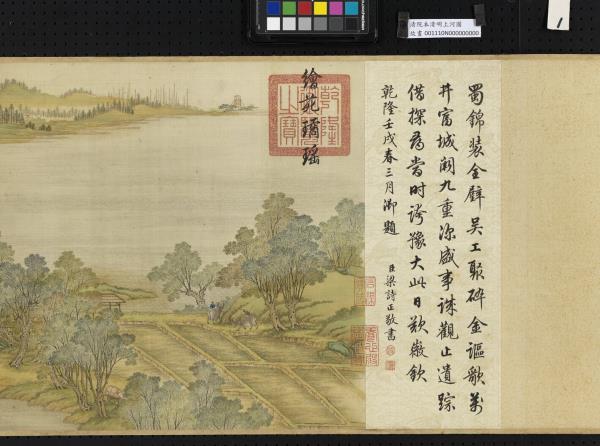 清院本清明上河圖
故畫 001110N000000000
1
蜀錦裝金壁吳工聚碎金謳歌萬
井富城闕九重深盛事誠觀止遺踪
借探尋當時誇豫大此日歎徽欽
乾隆壬戌春三月御題
臣梁詩正敬書
繪苑璚瑤
乾隆御覽之寶